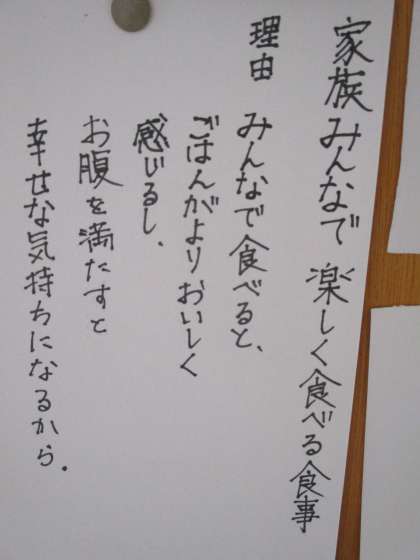 家族みんなで 楽しく食べる食事
理由 みんなで食べると、
ごはんがよりおいしく
感じるし、
お腹を満たすと
幸せな気持ちになるから。